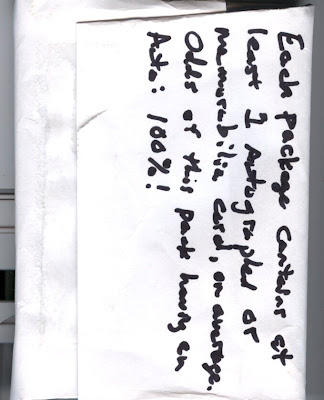 Each package contains at
least 1 Autographed or
memorabilia card, on average.
Odds of this pack having an
Auto: 100%!